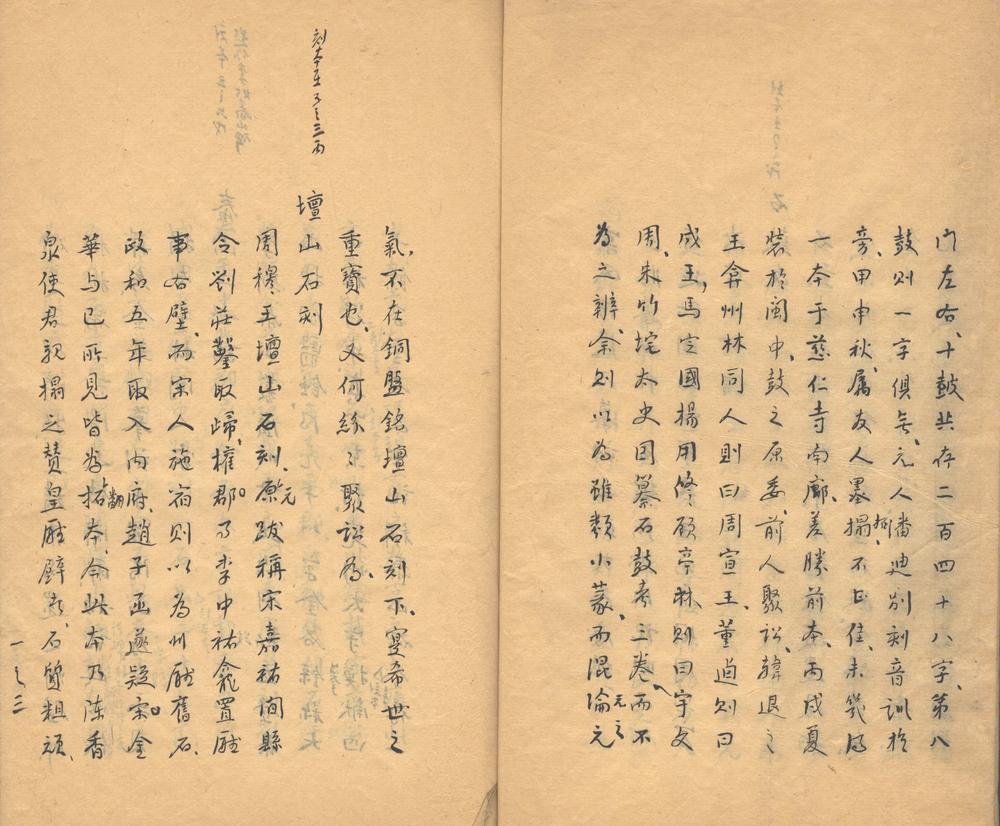 門左右、十鼓共存二百四十八字、第八
鼓則一字俱无、元人潘迪別刻音訓於
旁、甲申秋、属友人墨搨、不甚佳、未幾得
一本于慈仁寺南廊、差勝前本、丙戌夏
裝於閩中、鼓之原委、前人聚訟、韓退之
王弇州林同人則曰周宣王、董逌則曰
成王、馬定國楊用修顧亭林、則曰宇文
周、朱竹垞太史因纂石鼓考三卷、而不
為之辨、余則以為雖類小篆、而混淪元
元之
氣、不在銅盤銘壇山石刻下、寔希世之
重寶也、又何紛〻聚訟為、
刻本在
壇山石刻
周穆王壇山石刻、原跋稱宋嘉祐間縣
元
令劉莊鑿取歸、權郡事李中祐龕置廳
事右壁、而宋人施宿則以為州廳舊石、
政和五年取入內府、趙子函遂疑宋金
華與已所見皆為拓本、今此本乃陳香
翻
泉使君親搨之贊皇廳壁者、石質粗頑、
一之三